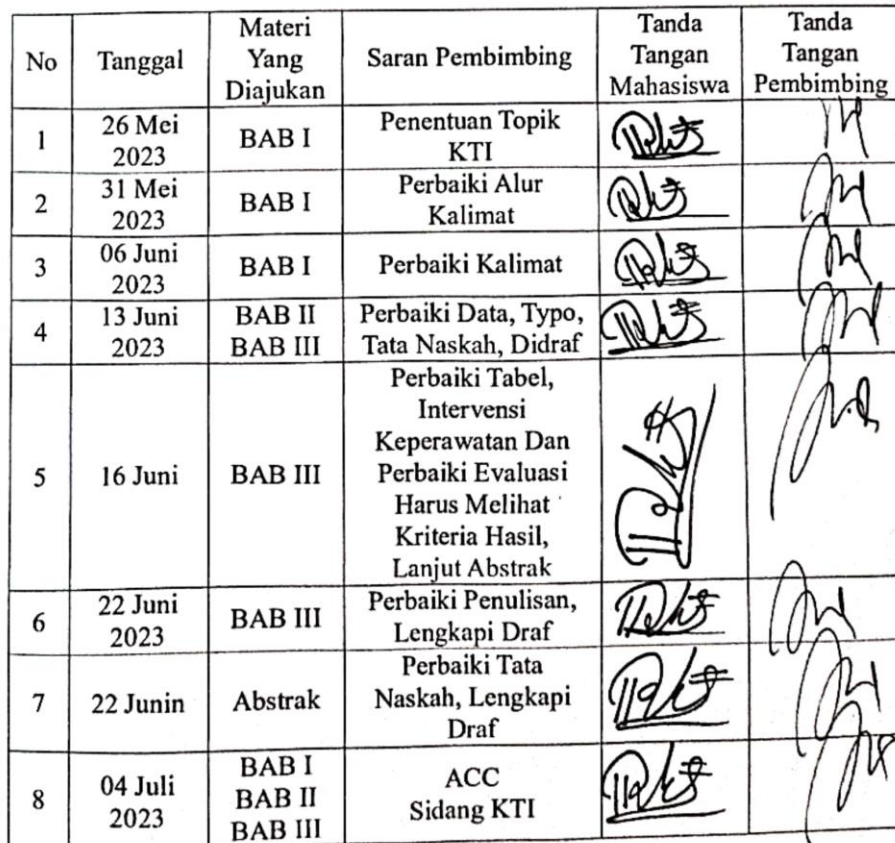 No
Tanggal
Materi
Yang
Diajukan
Saran Pembimbing
Tanda
Tangan
Mahasiswa
Tanda
Tangan
Pembimbing
1
26 Mei
2023
BAB I
Penentuan Topik
KTI
2
31 Mei
2023
BAB I
Perbaiki Alur
Kalimat
3
06 Juni
2023
BAB I
Perbaiki Kalimat
4
13 Juni
2023
BAB II
BAB III
Perbaiki Data, Typo,
Tata Naskah, Didraf
5
16 Juni
BAB III
Perbaiki Tabel,
Intervensi
Keperawatan Dan
Perbaiki Evaluasi
Harus Melihat
Kriteria Hasil,
Lanjut Abstrak
6
22 Juni
2023
BAB III
Perbaiki Penulisan,
Lengkapi Draf
7
22 Junin
Abstrak
Perbaiki Tata
Naskah, Lengkapi
Draf
8
04 Juli
2023
BAB I
BAB II
BAB III
ACC
Sidang KTI